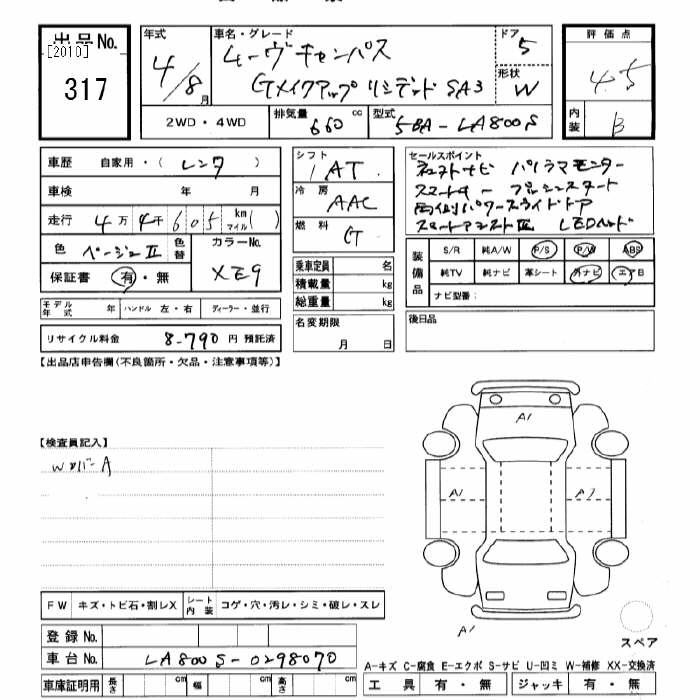 出品No.
[2010]
317
年式
4/8月
車名・グレード
ムーヴキャンバス
Gメイクアップリミテッド SA3
ドア
5
形状
W
評価点
4.5
内装
B
2WD・4WD
排気量
660 cc
型式
5BA-LA800S
車歴 自家用・(レンタ)
車検 年 月
走行 4万4千605 km マイル( )
色 ベージュII 色替 カラーNo. XE9
保証書 有・無
モデル年式 年 ハンドル 左・右 ディーラー・並行
リサイクル料金 8-790 円 預託済
シフト
AT
冷房
AAC
燃料
G
乗車定員 名
積載量 kg
総重量 kg
名変期限
月 日
セールスポイント
パノラマモニター
プッシュスタート
両側パワースライドドア
スマートアシストIII LEDヘッド
装備品
S/R 純A/W P/S P/W ABS
純TV 純ナビ 革シート 外ナビ エアB
ナビ型番:
後日品
【出品店申告欄(不良箇所・欠品・注意事項等)】
【検査員記入】
A
A1
A1
A1
FW キズ・トビ石・割レX シート内装 コゲ・穴・汚レ・シミ・破レ・スレ
登録No.
車台No. LA800S-0298070
車庫証明用 長さ cm 幅 cm 高さ cm
スペア
A-キズ C-腐食 E-エクボ S-サビ U-凹ミ W-補修 XX-交換済
工具 有・無 ジャッキ 有・無